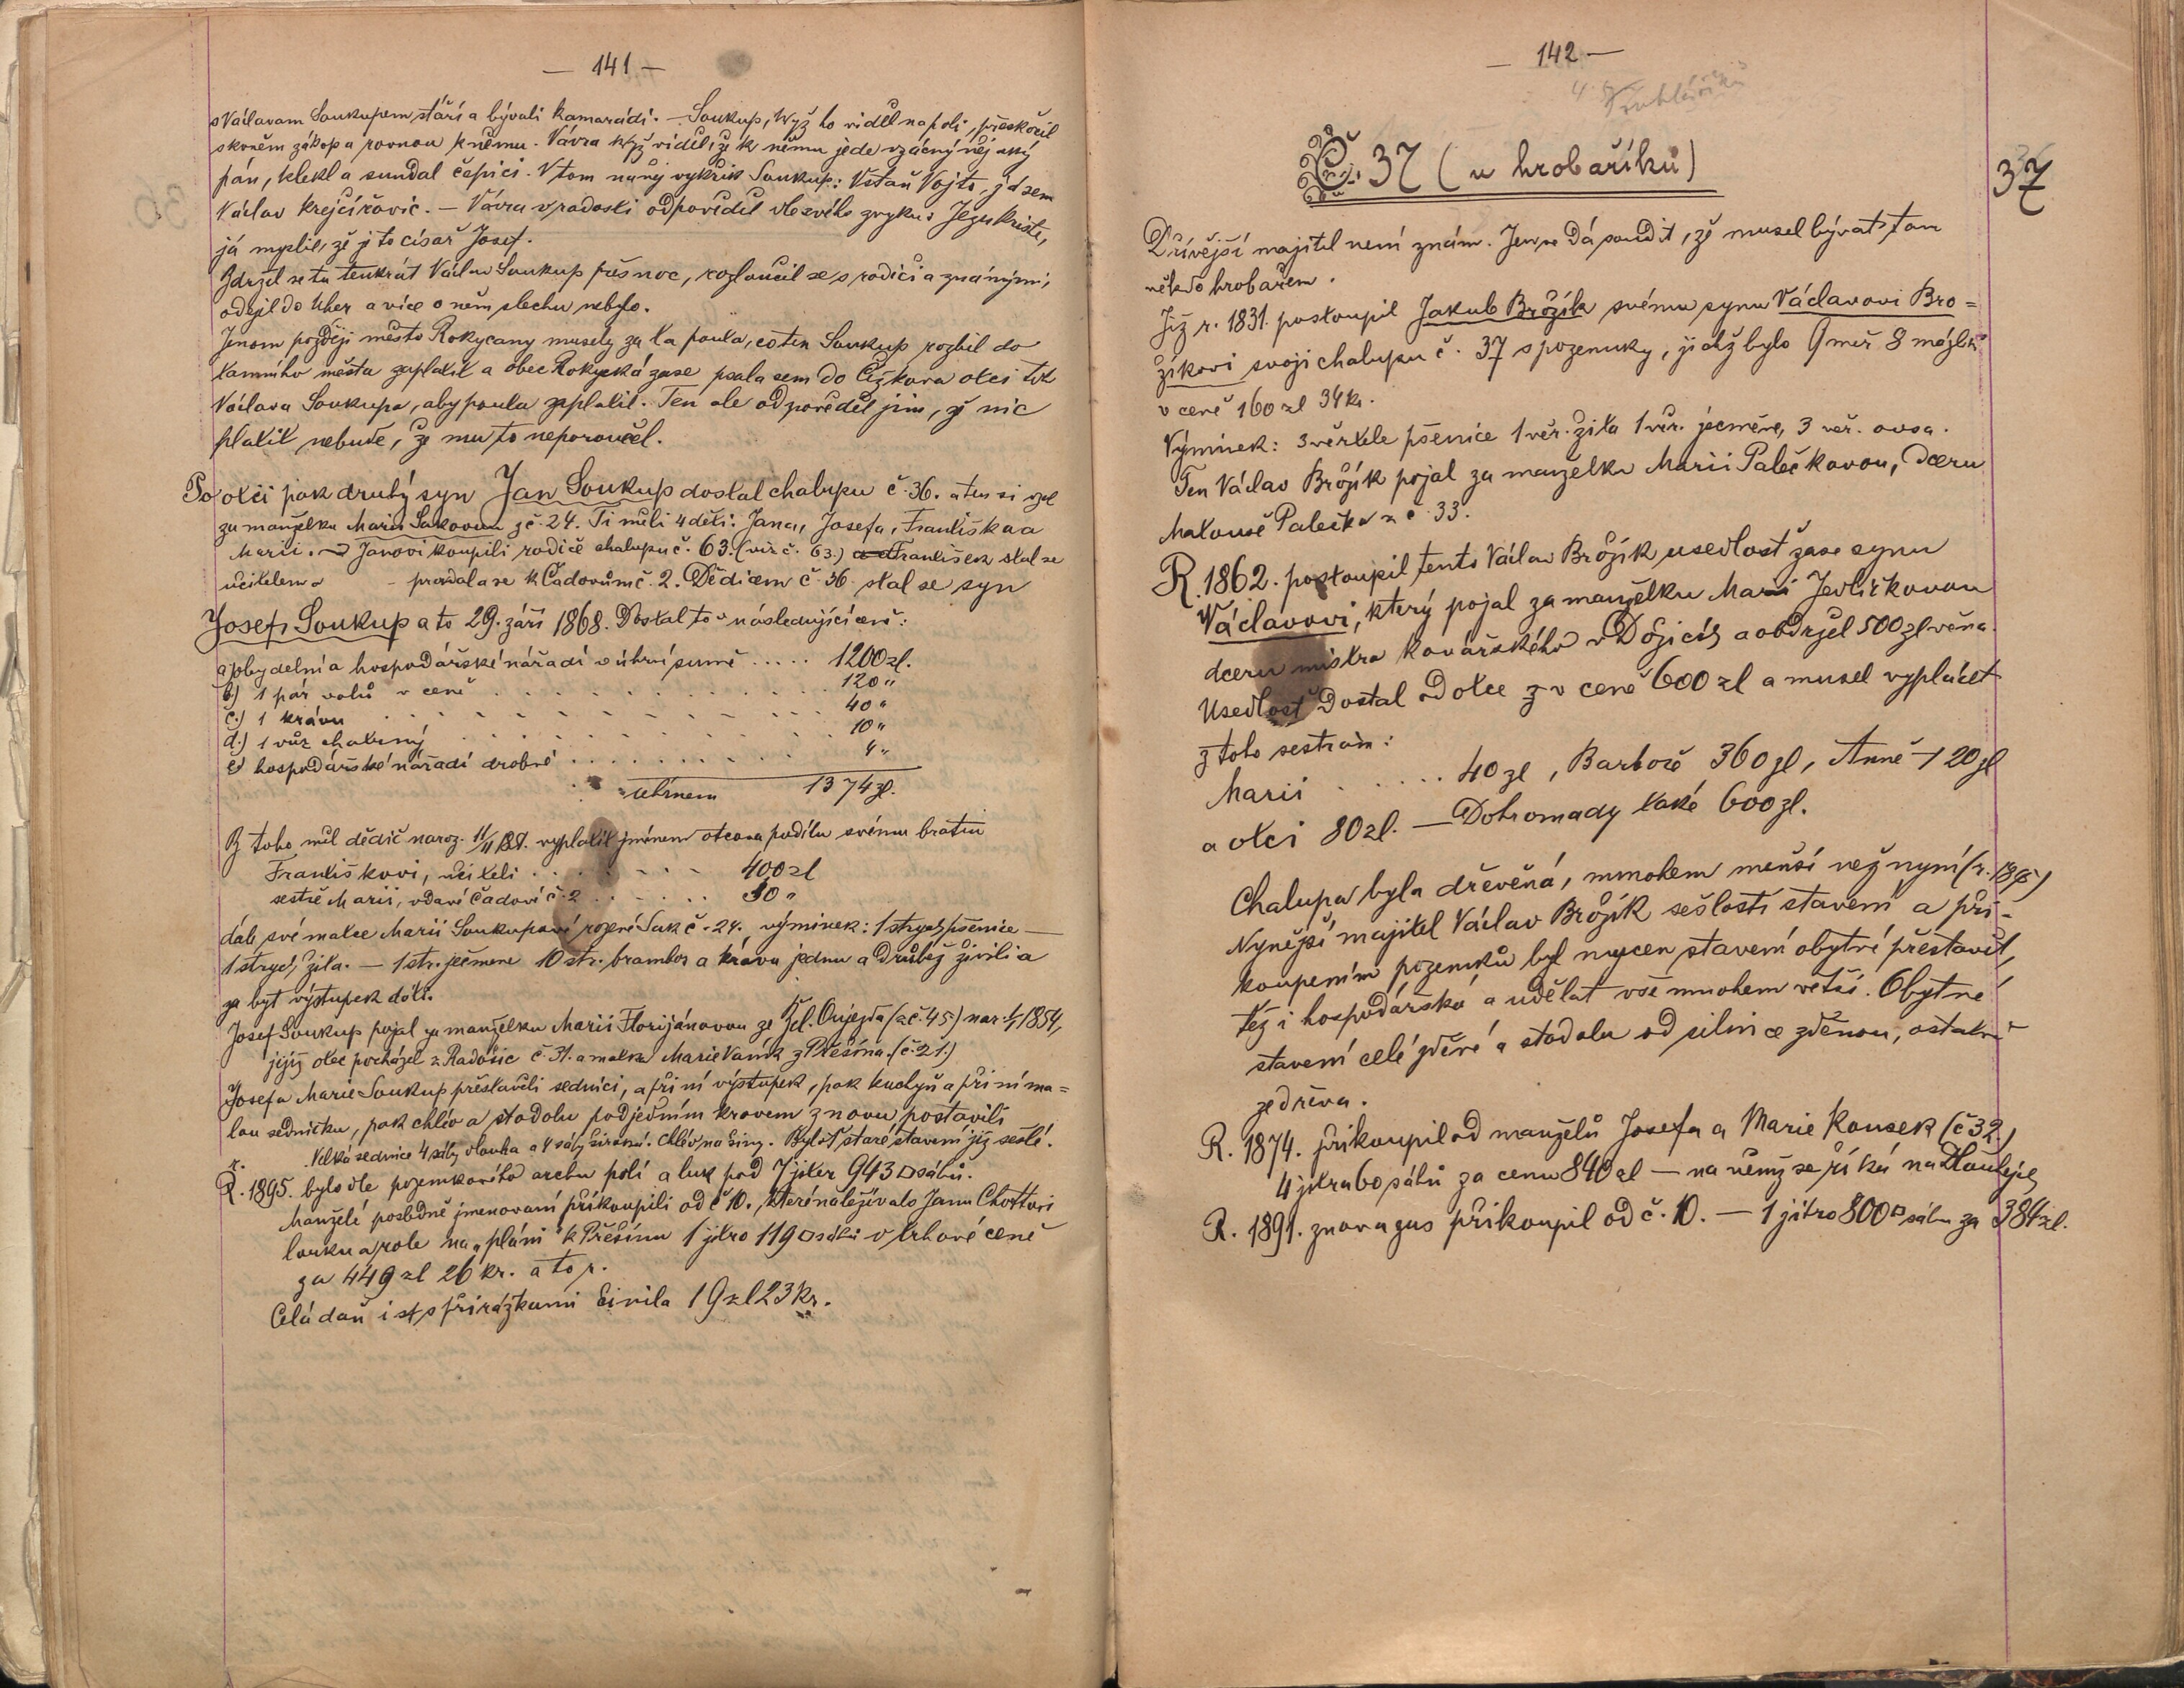 — 141 —
s Václavam Soukupem stáří a bývali kamarádi. — Soukup, když ho viděl na poli, přeskočil
s koněm zákop a rovnou k němu. Vávra když viděl, že k němu jede vzácný nějaký
pán, klekl a sundal čepici. V tom naněj vykřik Soukup: Vstaň Vojto, já sem
Václav Krejčířovic. — Vávra v radosti odpověděl dle svého zvyku: Jezukriste,
já myslil, že je to císař Josef.
Zdržel se tu tenkrát Václav Soukup přes noc, rozloučil se s rodiči a známými,
odejel do Uher a více o něm slechu nebylo.
Jenom později město Rokycany musely za ta pouta, co ten Soukup rozbil do
tamního města zaplatit a obec Rokycká zase psala sem do Čížkova otci téh
Václava Soukupa, aby pouta zaplatil. Ten ale odpověděl jim, že nic
platit nebude, že mu to neporoučel.
Po otci pak druhý syn Jan Soukup dostal chalupu č. 36. a ten si vzal
za manželku Marii Sakovou z č. 24. Ti měli 4 děti: Jana, Josefa, Františka a
Marii. — Janovi koupili rodiče chalupu č. 63. (viz č. 63.) František stal se
učitelem a - prodala se k Čadovům č. 2. Dědicem č. 36 stal se syn
Josef Soukup a to 29. září 1868. Dostal to v následující ceně:
a) obydelní a hospodářské nářadí v úhrní sumě ..... 1200 zl.
b) 1 pár volů v ceně . . . . . . . . 120 "
c.) 1 krávu . . . . . . . . . . 40 "
d.) 1 vůz chatrný . . . . . . . . . 10 "
e) hospodářské nářadí drobné . . . . . . . 4 "
úhrnem 1374 zl.
Z toho měl dědič naroz. vyplatit jménem otcova podílu svému bratru
Františkovi, učiteli . . . . . . 400 zl
sestře Marii, vdavé Čadové č. 2 . . . . . 30 "
dále své matce Marii Soukupové rozené Sak č. 24. výminek: 1 strych pšenice —
1 strych žita. — 1 str. ječmene 10 str. brambor a krávu jednu a drůbež živili a
za byt výstupek dáti.
Josef Soukup pojal za manželku Marii Florijánovou ze Žel. Oujezda (z č. 45) nar. 1/1 1854,
jejíž otec pocházel z Radošic č 31. a matka Marie Vaník z Přešína. (č. 21.)
Josef a Marie Soukup přestavěli sednici, a při ní výstupek, pak kuchyň a při ní ma=
lou sedničku, pak chlév a stodolu pod jedním krovem znovu postavili
. Velká sednice 4 sáhy dlouhá a 4 sáhy široká. Chlév na šíny. Byloť staré stavení již sešlé.
R. 1895. bylo dle pozemkového archu polí a luk pod 7 jiter 943 □ sáhů.
Manželé posledně jmenovaní přikoupili od č 10., které náležívalo Janu Chottovi
louku a pole na "pláni" k Přešínu 1 jitro 119 □ sáhů v trhové ceně
za 449 zl 26 kr. a to r.
Celá daň i s přirážkami činila 19 zl 23 kr.
— 142 —
Truhláříků
Č. 37 (u hrobaříků)
37
Dřívější majitel není znám. Jen se dá soudit, že musel bývat tam
někdo hrobařem.
Již r. 1831. postoupil Jakub Brožík svému synu Václavovi Bro=
žíkovi svoji chalupu č. 37 s pozemky, jichž bylo 9 měř 8 máзlíků
v ceně 160 zl 34 kr.
Výminek: 3 věrtele pšenice 1 věr. žita 1 věr. ječmene, 3 věr. ovsa.
Ten Václav Brožík pojal za manželku Marii Palečkovou, dceru
Matouše Palečka z č. 33.
R. 1862. postoupil tento Václav Brožík usedlosť zase synu
Václavovi, který pojal za manželku Marii Jedličkovou
dceru mistra kovářského v Dožicích a obdržel 500 zl věna.
Usedlosť dostal od otce z v ceně 600 zl a musel vyplácet
z toho sestrám:
Marii . . . . . 40 zl, Barboře 360 zl, Anně 120 zl
a otci 80 zl. — Dohromady také 600 zl.
Chalupa byla dřevěná, mnohem menší než nyní (r. 1895)
Nynější majitel Václav Brožík sešlostí stavení a při-
koupením pozemků byl nucen stavení obytné přestavět,
též i hospodářská a udělat vše mnohem větší. Obytné
stavení celé zděné a stodolu od silnice zděnou, ostatní
ze dřeva.
R. 1874. přikoupil od manželů Josefa a Marie Kousek (č 32.)
4 jitra 60 sáhů za cenu 840 zl — na němž se říká na Dlouhejch
R. 1891. znova zas přikoupil od č. 10. — 1 jitro 800 □ sáhů za 384 zl.